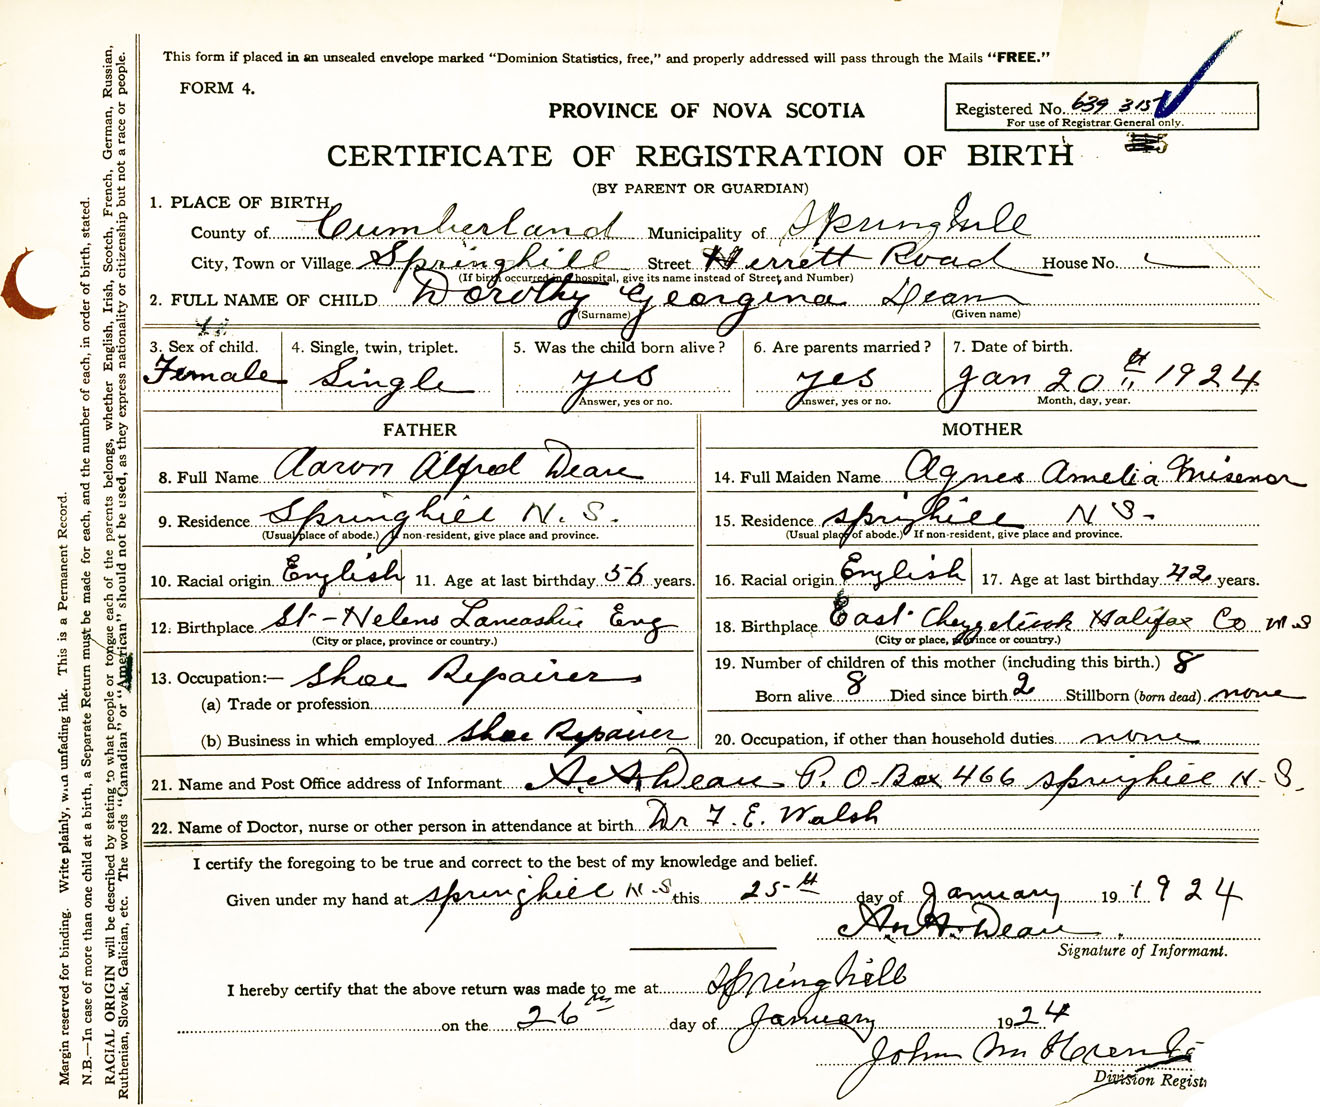 This form if placed in an unsealed envelope marked "Dominion Statistics, free," and properly addressed will pass through the Mails "FREE."
FORM 4.
PROVINCE OF NOVA SCOTIA
Registered No. 639 315
For use of Registrar General only.
CERTIFICATE OF REGISTRATION OF BIRTH
(BY PARENT OR GUARDIAN)
1. PLACE OF BIRTH
County of Cumberland Municipality of Springhill
City, Town or Village Springhill Street Herrett Road House No.
(If birth occurred in a hospital, give its name instead of Street and Number)
2. FULL NAME OF CHILD Dorothy Georgina Dean
(Surname) (Given name)
3. Sex of child. 4. Single, twin, triplet. 5. Was the child born alive? 6. Are parents married? 7. Date of birth.
Female Single yes yes Jan 20th 1924
Answer, yes or no. Answer, yes or no. Month, day, year.
FATHER MOTHER
8. Full Name Aaron Alfred Dean 14. Full Maiden Name Agnes Amelia Misenor
9. Residence Springhill N. S. 15. Residence Springhill N S.
(Usual place of abode.) If non-resident, give place and province. (Usual place of abode.) If non-resident, give place and province.
10. Racial origin English 11. Age at last birthday 56 years. 16. Racial origin English 17. Age at last birthday 42 years.
12. Birthplace St-Helens Lancashire Eng 18. Birthplace East Halifax Co N.S
(City or place, province or country.) (City or place, province or country.)
13. Occupation:— Shoe Repairer 19. Number of children of this mother (including this birth.) 8
(a) Trade or profession Born alive 8 Died since birth 2 Stillborn (born dead) none
(b) Business in which employed Shoe Repairer 20. Occupation, if other than household duties none
21. Name and Post Office address of Informant A. A. Dean P. O-Box 466 Springhill N-S.
22. Name of Doctor, nurse or other person in attendance at birth Dr F. E. Walsh
I certify the foregoing to be true and correct to the best of my knowledge and belief.
Given under my hand at Springhill N.S this 25th day of January 19 1924
A. A. Dean
Signature of Informant.
I hereby certify that the above return was made to me at Springhill
on the 26th day of January 1924
John
Division Regist
Margin reserved for binding. Write plainly, with unfading ink. This is a Permanent Record.
N.B.—In case of more than one child at a birth, a Separate Return must be made for each, and the number of each, in order of birth, stated.
RACIAL ORIGIN will be described by stating to what people or tongue each of the parents belongs, whether English, Irish, Scotch, French, German, Russian,
Ruthenian, Slovak, Galician, etc. The words "Canadian" or "American" should not be used, as they express nationality or citizenship but not a race or people.